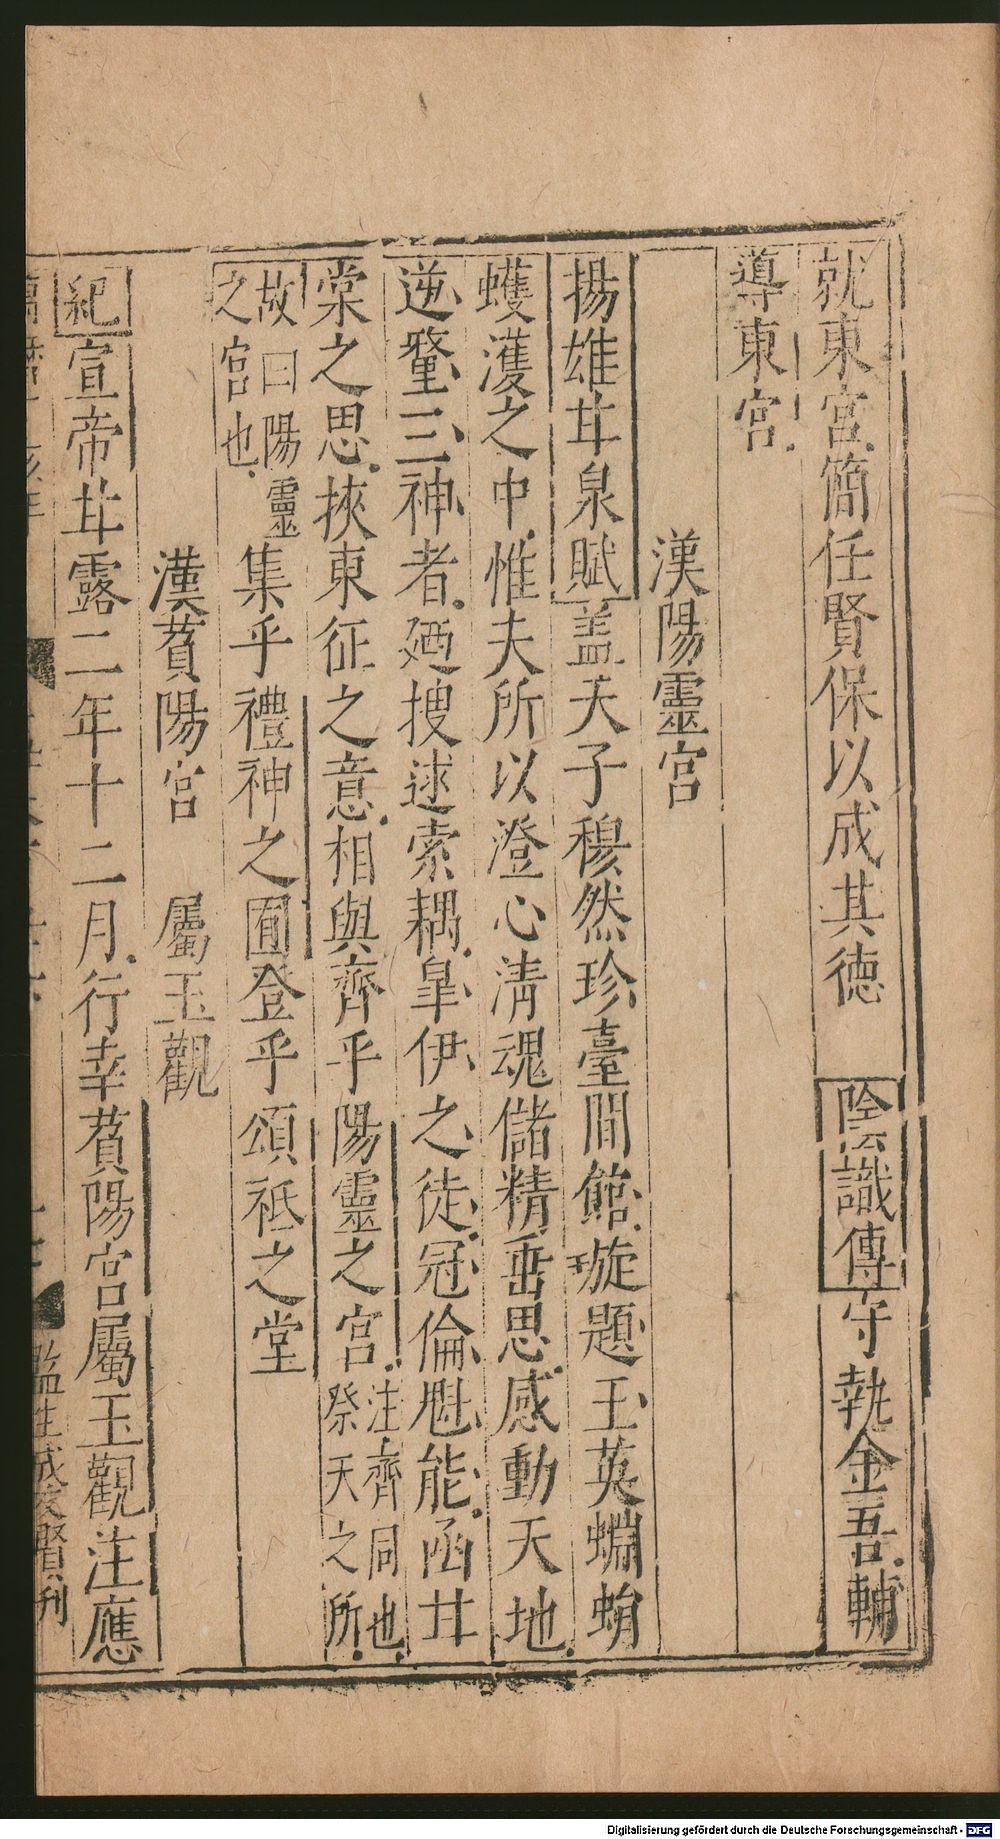 就東宮簡任賢保以成其德 陰識傳守執金吾輔
導東宮
漢陽靈宮
揚雄甘泉賦蓋天子穆然珍臺閒館璇題玉英蜵蜎
蠖濩之中惟夫所以澄心清魂儲精垂思感動天地
逆釐三神者廼搜逑索耦臯伊之徒冠倫魁能函甘
棠之思挾東征之意相與齊乎陽靈之宮注齊同也祭天之所
故曰陽靈之宮也集乎禮神之囿登乎頌祗之堂
漢萯陽宮 屬玉觀
紀宣帝甘露二年十二月行幸萯陽宮屬玉觀注應
監生成友賢刊
Digitalisierung gefördert durch die Deutsche Forschungsgemeinschaft - DFG